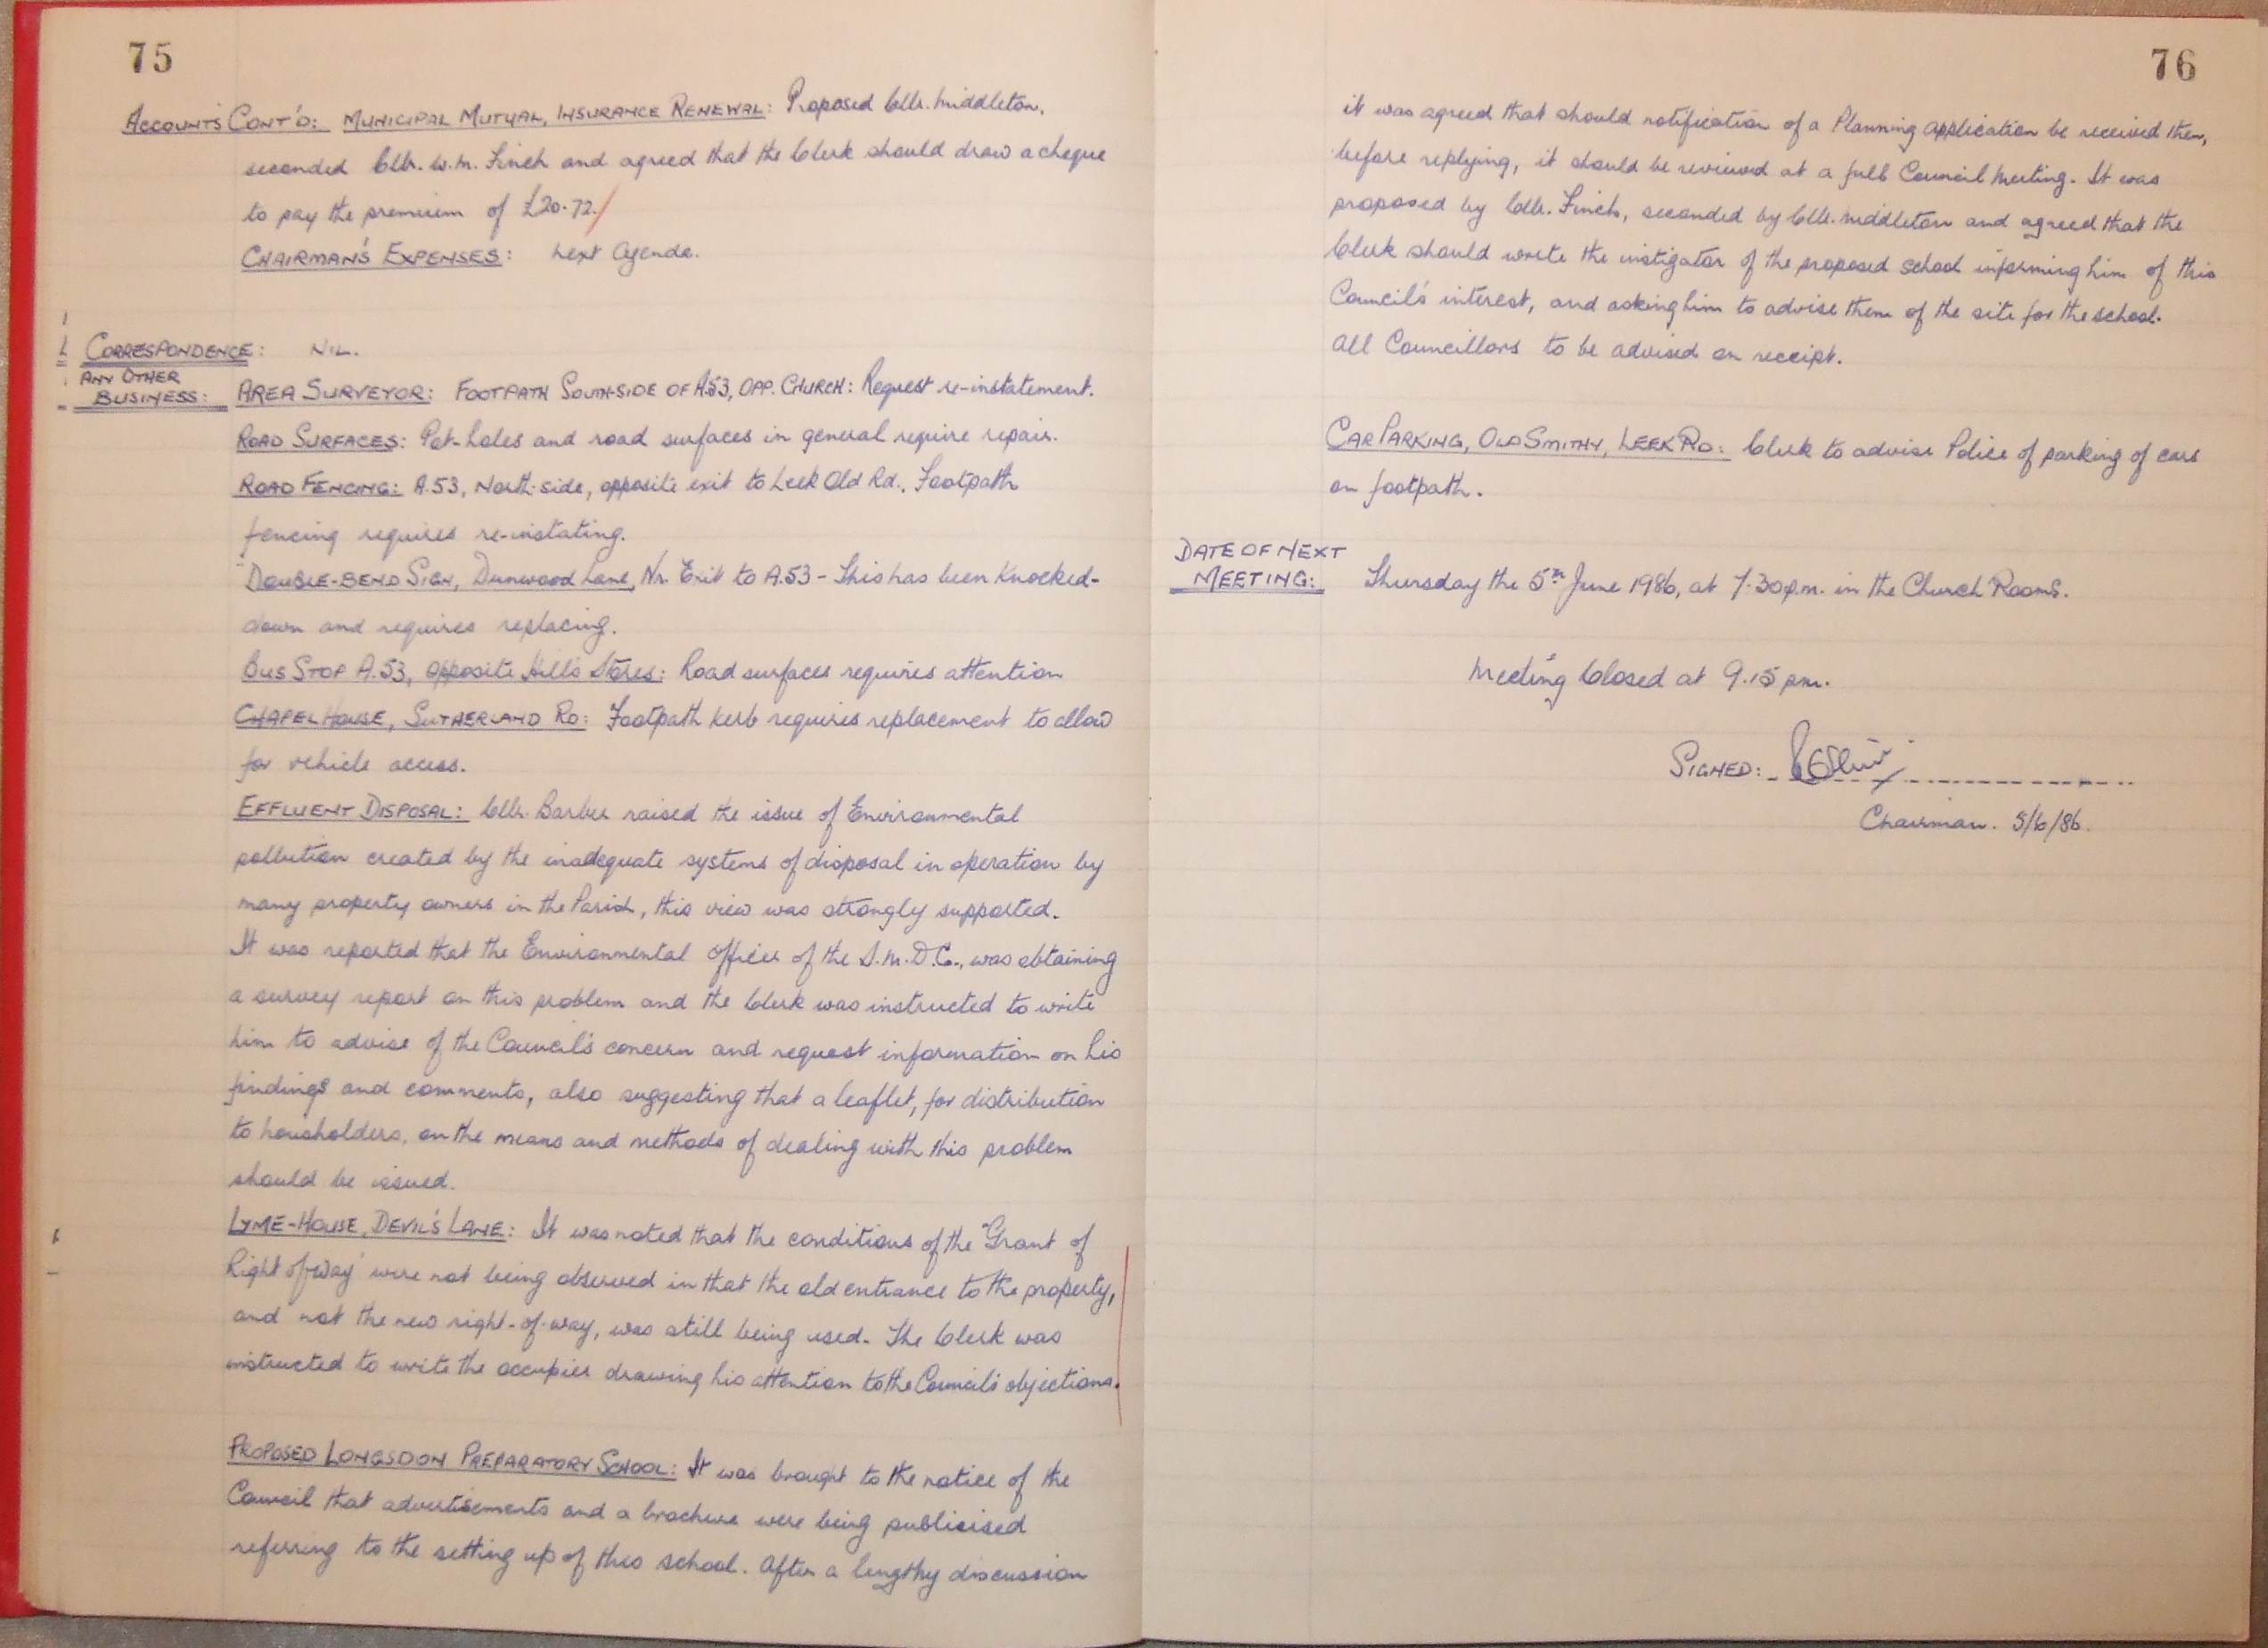 75
ACCOUNTS CONT'D: MUNICIPAL MUTUAL, INSURANCE RENEWAL: Proposed Cllr. Middleton,
seconded Cllr. W.M. Finch and agreed that the Clerk should draw a cheque
to pay the premium of £20.72./
CHAIRMAN'S EXPENSES: Next Agenda.
CORRESPONDENCE: NIL.
ANY OTHER
BUSINESS: AREA SURVEYOR: FOOTPATH SOUTH-SIDE OF A.53, OPP. CHURCH: Request re-instatement.
ROAD SURFACES: Pot-holes and road surfaces in general require repair.
ROAD FENCING: A.53, North-side, opposite exit to Leek Old Rd., Footpath
fencing requires re-instating.
DOUBLE-BEND SIGN, Dunwood Lane, Nr. Exit to A.53 - This has been knocked-
down and requires replacing.
BUS STOP A.53, opposite Hill's Stores: Road surfaces requires attention
CHAPEL HOUSE, SUTHERLAND RD: Footpath kerb requires replacement to allow
for vehicle access.
EFFLUENT DISPOSAL: Cllr. Barber raised the issue of Environmental
pollution created by the inadequate systems of disposal in operation by
many property owners in the Parish, this view was strongly supported.
It was reported that the Environmental Officer of the S.M.D.C., was obtaining
a survey report on this problem and the Clerk was instructed to write
him to advise of the Council's concern and request information on his
findings and comments, also suggesting that a leaflet, for distribution
to housholders, on the means and methods of dealing with this problem
should be issued.
LYME-HOUSE, DEVIL'S LANE: It was noted that the conditions of the 'Grant of
Right of Way' were not being observed in that the old entrance to the property,
and not the new right-of-way, was still being used. The Clerk was
instructed to write the occupier drawing his attention to the Council's objections.
PROPOSED LONGSDON PREPARATORY SCHOOL: It was brought to the notice of the
Council that advertisements and a brochure were being publicised
referring to the setting up of this school. After a lengthy discussion
76
it was agreed that should notification of a Planning application be received then,
before replying, it should be reviewed at a full Council Meeting. It was
proposed by Cllr. Finch, seconded by Cllr. Middleton and agreed that the
Clerk should write the instigator of the proposed school informing him of this
Council's interest, and asking him to advise them of the site for the school.
All Councillors to be advised on receipt.
CAR PARKING, OLD SMITHY, LEEK RD: Clerk to advise Police of parking of cars
on footpath.
DATE OF NEXT
MEETING: Thursday the 5th June 1986, at 7.30 p.m. in the Church Rooms.
Meeting Closed at 9.15 pm.
SIGNED:
Chairman. 5/6/86.